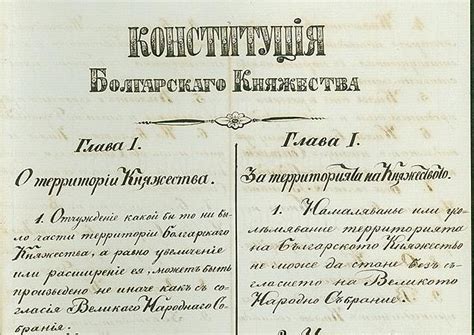 КОНСТИТУЦІЯ
Болгарскаго Княжества
Глава I.
О территоріи Княжества.
1. Отчужденіе какой бы то ни бы-
ло части территоріи Болгарскаго
Княжества, а равно увеличеніе
или расширеніе ея, можетъ быть
произведено не иначе какъ съ со-
гласія Великаго Народнаго Со-
бранія.
Глава I.
За територията на Княжеството.
1. Намаляванье или уго-
лѣмяванье территорията
на Българското Княжество
не може да стани безъ съ-
гласието на Великото
Народно Събрание.